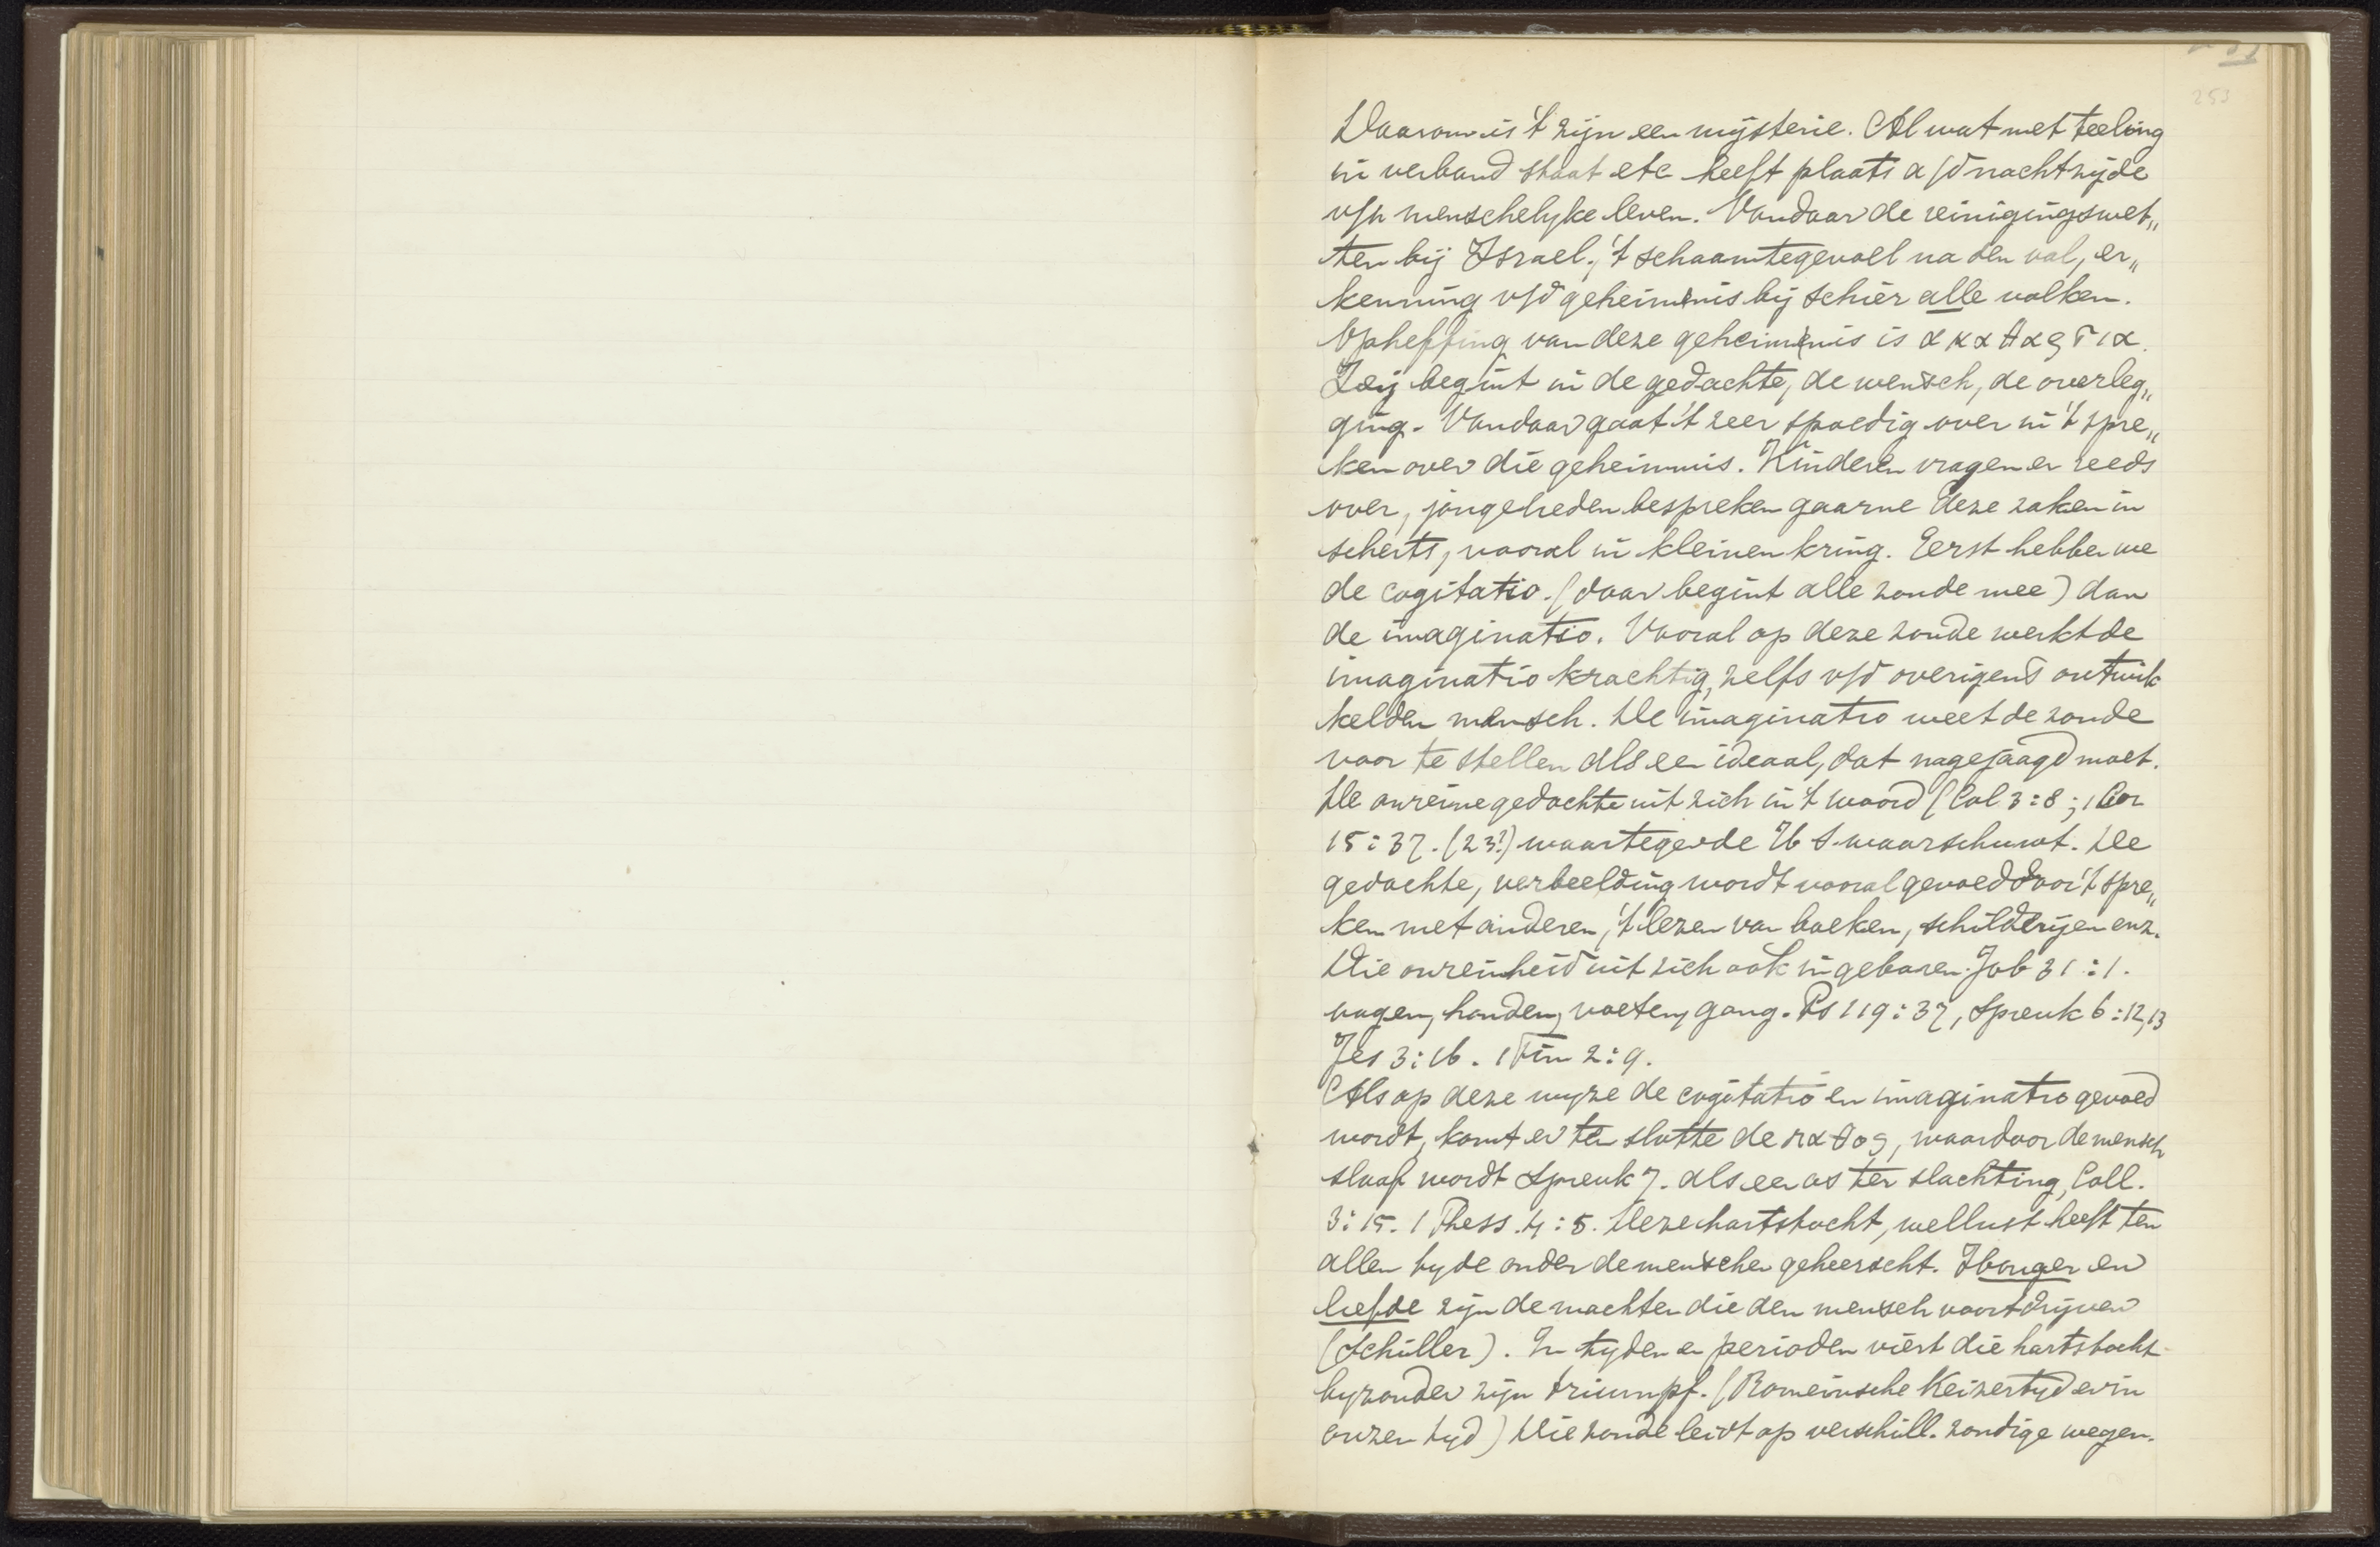 253
Daarom is 't zijn een mysterie. Al wat met teeling
in verband staat etc heeft plaats a/d nachtzyde
v/h menschelyke leven. Vandaar de reinigingswet„
ten bij Israel., 't schaamtegevoel na den val, er„
kenning v/d geheimenis bij schier alle volken.
Opheffing van deze geheimenis is ακαθαρσια.
Zij begint in de gedachte, de wensch, de overleg„
ging. Vandaar gaat 't zeer spoedig over in 't spre„
ken over die geheimnis. Kinderen vragen er reeds
over, jongelieden bespreken gaarne deze zaken in
scherts, vooral in kleinen kring. Eerst hebben we
de cogitatio. (daar begint alle zonde mee) dan
de imaginatio. Vooral op deze zonde werkt de
imaginatio krachtig, zelfs v/d overigens ontwik
kelden mensch. De imaginatio weet de zonde
voor te stellen als een ideaal, dat nagejaagd moet.
De onreine gedachte uit zich in 't woord (Col 3:8; 1 Cor
15:37. (23?) waartegen de H S. waarschuwt. De
gedachte, verbeelding wordt vooral gevoed door 't spre„
ken met anderen, 't lezen van boeken, schilderijen enz.
Die onreinheid uit zich ook in gebaren. Job 31:1.
oogen, handen, voeten, gang. Ps 119:37, Spreuk 6:12,13
Jes 3:16. 1 Tim 2:9.
Als op deze wyze de cogitatio en imaginatio gevoed
wordt, komt er ten slotte de παθος, waardoor de mensch
slaaf wordt Spreuk 7. als een os ter slachting, Coll.
3:15. 1 Thess. 4:5. Deze hartstocht, wellust heeft ten
allen tyde onder de menschen geheerscht. Honger en
liefde zijn de machten die den mensch voortdrijven
(Schiller). In tyden en perioden viert die hartstocht
byzonder zijn triumpf. (Romeinsche Keizertyd en in
onzen tyd) Die zonde leidt op verschill. zondige wegen.